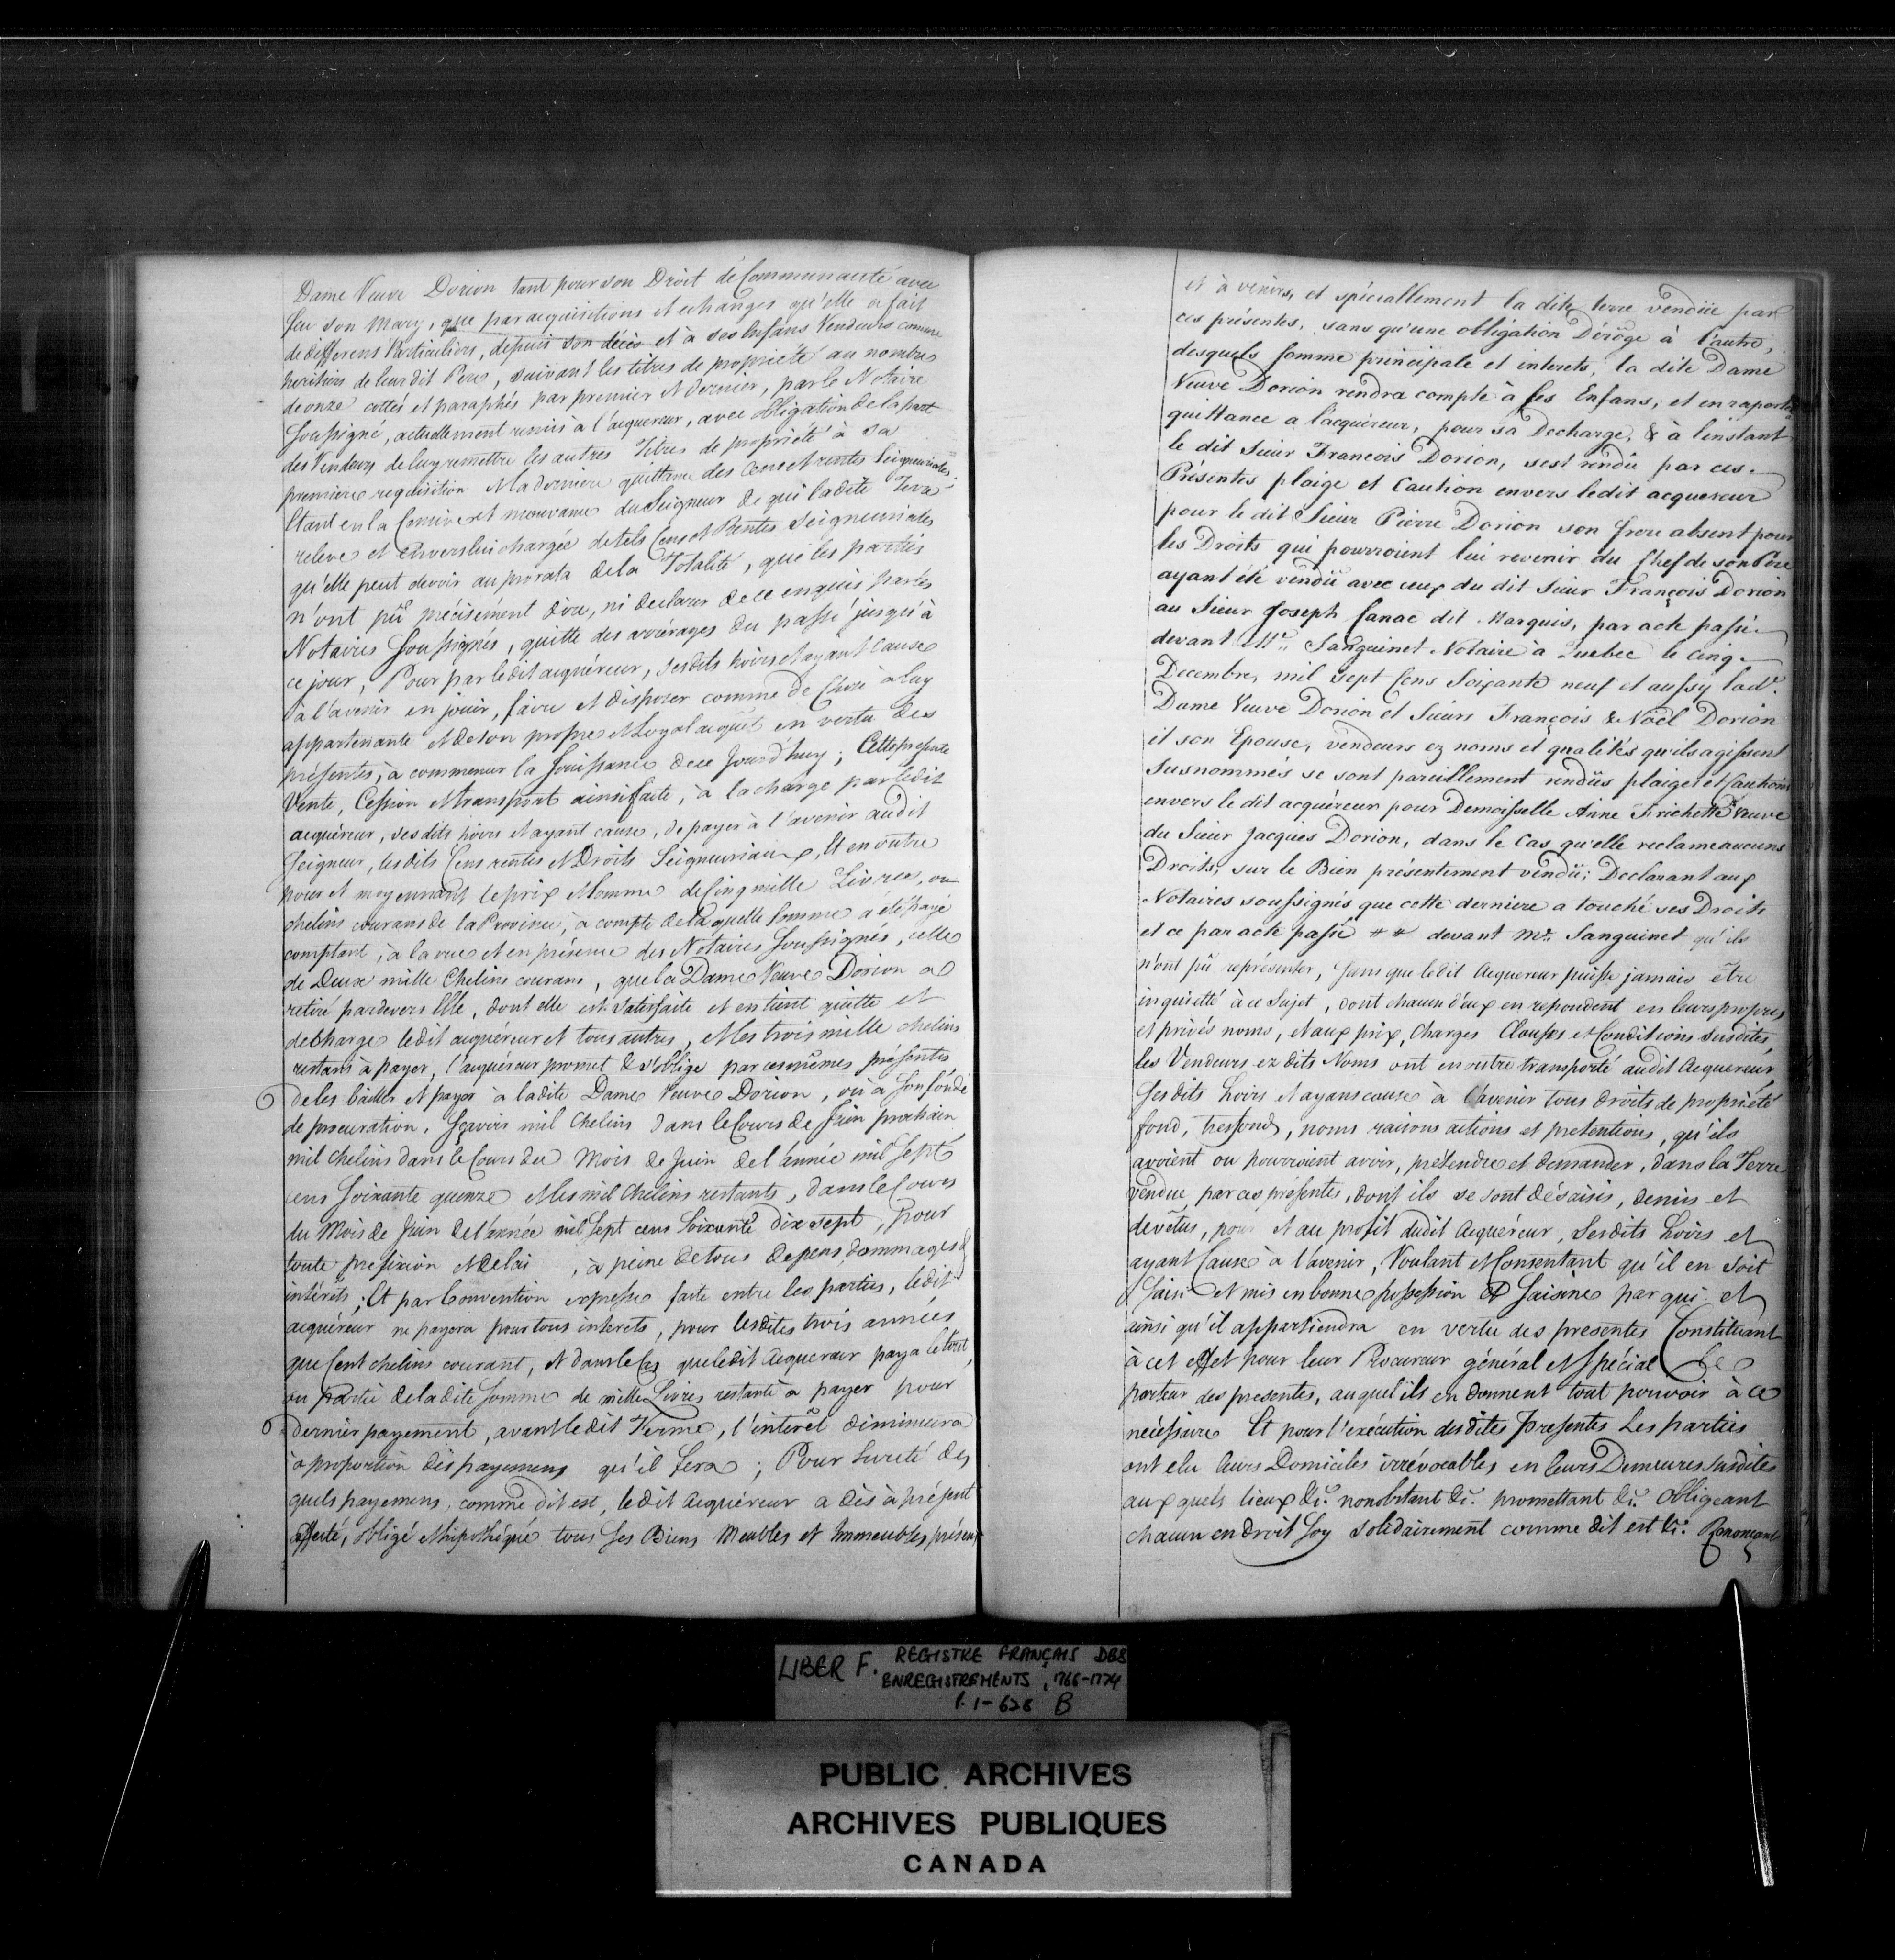 Dame Veuve Dorion tant pour son Droit de Communauté avec
feu son Mary, que par acquisitions et echanges qu'elle a fait
de differens Particuliers, depuis son décès et à ses Enfans Vendeurs comme
heritiers de leur dit Pere, suivant les titres de propriété au nombre
de onze cottés et paraphés par premier et dernier, par le Notaire
soussigné, actuellement remis à l'acquereur, avec obligation de la part
des Vendeurs de luy remettre les autres Titres de propriété à sa
premiere requisition et la derniere quittance des Cens et rentes Seigneuriales;
Etant en la Censive et mouvance du Seigneur de qui ladite Terre
releve et Envers lui chargée de tels Cens et Rentes Seigneuriales
qu'elle peut devoir au prorata de la Totalité, que les parties
n'ont pû précisément dire, ni declarer de ce enquis par les
Notaires Soussignés, quitte des arrérages du passé jusqu'à
ce jour, Pour par ledit acquéreur, ses dits hoirs et ayant Cause
à l'avenir en jouir, faire et disposer comme de Chose à luy
appartenante et de son propre et loyal acquêt en vertu des
présentes, à commencer la Jouissance de ce Jourd'huy; Cette presente
Vente, Cession et transport ainsi faite, à la charge par ledit
acquéreur, ses dits hoirs et ayant cause, de payer à l'avenir audit
Seigneur, lesdits Cens rentes et Droits Seigneuriaux, Et en outre
pour et moyennant le prix et somme de Cinq mille Livres, ou
chelins courans de la Province, à compte de laquelle somme a été payé
comptant, à la vue et en présence des Notaires Soussignés, celle
de Deux mille Chelins courans, que la Dame Veuve Dorion a
retiré pardevers Elle, dont elle est satisfaite et en tient quitte et
decharge ledit acquéreur et tous autres, et les trois mille chelins
restans à payer, l'acquéreur promet & s'oblige par ces mêmes présentes
de les bailler et payer à ladite Dame Veuve Dorion, ou à son fondé
de procuration, Sçavoir mil Chelins dans le Cours de Juin prochain
mil Chelins dans le Cours du Mois de Juin de l'année mil sept
cens soixante quinze et les mil Chelins restants, dans le Cours
du Mois de Juin de l'année mil sept cens soixante dix sept, Pour
toute prefixion et delai, à peine de tous depens, dommages &
intérêts; Et par Convention expresse faite entre les parties, ledit
acquéreur ne payera pour tous interets, pour lesdites trois années
que Cent chelins courant, et dans le Cas que ledit Acquereur paya le tout,
ou Partie de ladite Somme de mille Livres restante à payer pour
dernier payement, avant ledit Terme, l'intérêt diminuera
à proportion des payemens qu'il fera; Pour sureté des
quels payemens, comme dit est, ledit Acquéreur a dès à présent
affecté, obligé et hipothéqué tous ses Biens Meubles et Immeubles, présens
et à venirs, et spéciallement la dite terre vendüe par
ces présentes, sans qu'une obligation Déroge à l'autre,
desquels somme principale et interets, la dite Dame
Veuve Dorion rendra compte à ses Enfans, et en raportera
quittance a l'acquéreur, pour sa Decharge, & à l'instant
le dit Sieur François Dorion, s'est rendû par ces
Présentes plaige et Caution envers ledit acquereur
pour le dit Sieur Pierre Dorion son frere absent pour
les Droits qui pourroient lui revenir du Chef de son Pere
ayant été vendû avec ceux du dit Sieur François Dorion
au Sieur Joseph Canac dit Marquis, par acte passé
devant Me. Sanguinet Notaire à Quebec le cinq
Decembre, mil sept Cens Soixante neuf et aussy lade.
Dame Veuve Dorion et Sieurs François & Noël Dorion
et son Epouse, vendeurs ez noms et qualités qu'ils agissent
Susnommés se sont pareillement rendûs plaiges et Cautions
envers le dit acquéreur pour Demoisselle Anne Frichette Veuve
du Sieur Jacques Dorion, dans le Cas qu'elle reclame aucuns
Droits, sur le Bien présentement vendû; Declarant aux
Notaires soussignés que cette derniere a touché ses Droits
et ce par acte passé ## devant Me. Sanguinet qu'ils
n'ont pû représenter, sans que ledit Acquereur puisse jamais être
inquietté à ce sujet, dont chacun d'eux en repondent en leurs propres
et privés noms, et aux prix, Charges Clauses et Conditions susdites,
les Vendeurs ez dits Noms ont en outre transporté audit Acquereur
ses dits hoirs et ayans cause à l'avenir tous droits de propriété
fond, tresfond, noms raisons actions et pretentions, qu'ils
avoient ou pourroient avoir, pretendre et demander, dans la Terre
vendue par ces présentes, dont ils se sont désaisis, demis et
devêtus, pour et au profit dudit Acquéreur, ses dits hoirs et
ayant Cause à l'avenir, Voulant et Consentant qu'il en soit
Saisi et mis en bonne possession & Saisine par qui et
ainsi qu'il appartiendra en vertu des presentes Constituant
à cet effet pour leur Procureur général et spécial Le
porteur des presentes, auquel ils en donnent tout pouvoir à ce
nécessaire Et pour l'exécution desdites Presentes Les parties
ont elu leurs Domiciles irrévocables en leurs Demeures susdites
auxquels lieux &c. nonobstant &c. promettant &c. Obligeant
chacun en droit soy solidairement comme dit est &c. Renonçant
LIBER F. REGISTRE FRANÇAIS DES
ENREGISTREMENTS, 1766-1774
P. 1-628 B
PUBLIC ARCHIVES
ARCHIVES PUBLIQUES
CANADA